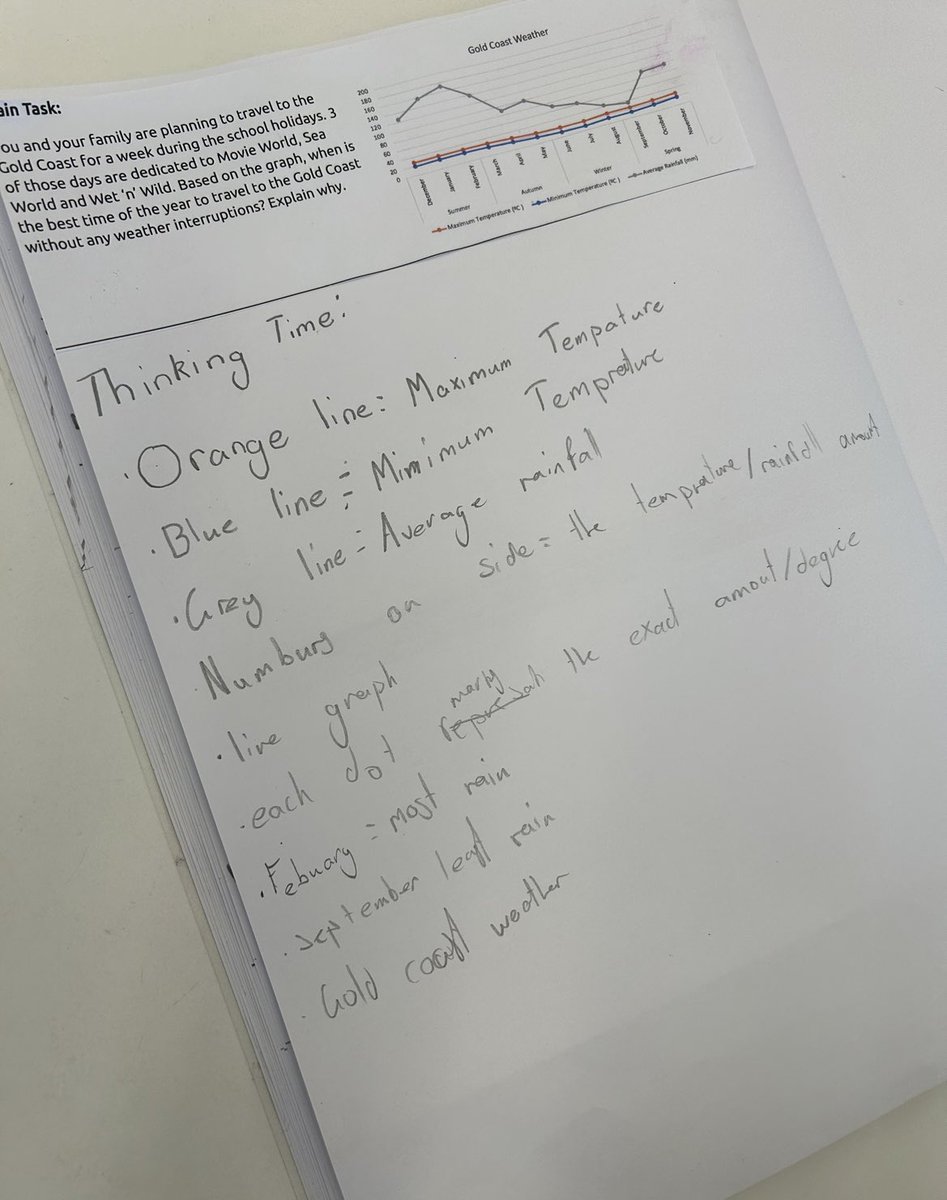 ain Task:
ou and your family are planning to travel to the
Gold Coast for a week during the school holidays. 3
of those days are dedicated to Movie World, Sea
World and Wet 'n' Wild. Based on the graph, when is
the best time of the year to travel to the Gold Coast
without any weather interruptions? Explain why.
Gold Coast Weather
200
180
160
140
120
100
80
60
40
20
0
December
January
February
March
April
May
June
July
August
September
October
November
Summer
Autumn
Winter
Spring
Maximum Temperature (ºC)
Minimum Temperature (ºC)
Average Rainfall (mm)
Thinking Time:
· Orange line = Maximum Tempature
· Blue line = Mimimum Temprature
· Grey line = Average rainfal
· Numburs on side = the temprature/rainfall amout
· line graph
· each dot marks the exact amout/degree
· Febuary = most rain
· september least rain
· Gold coast weather